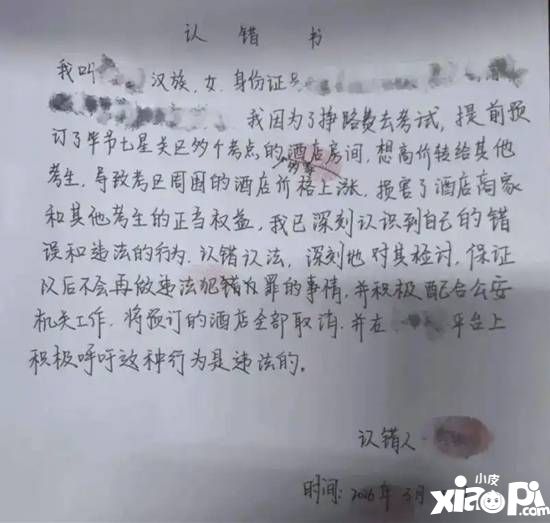 认错书
我叫 汉族,女,身份证号
我因为了挣路费去考试,提前预
订了毕节七星关区多个考点的酒店房间,想高价转给其他
考生,导致考区周围的酒店价格上涨,损害了酒店商家
和其他考生的正当权益,我已深刻认识到自己的错
误和违法的行为,认错认法,深刻地对其检讨,保证
以后不会再做违法犯罪的事情,并积极配合公安
机关工作,将预订的酒店全部取消,并在 平台上
积极呼吁这种行为是违法的。
认错人
时间: 2026年3月
小皮
xiaopi.com